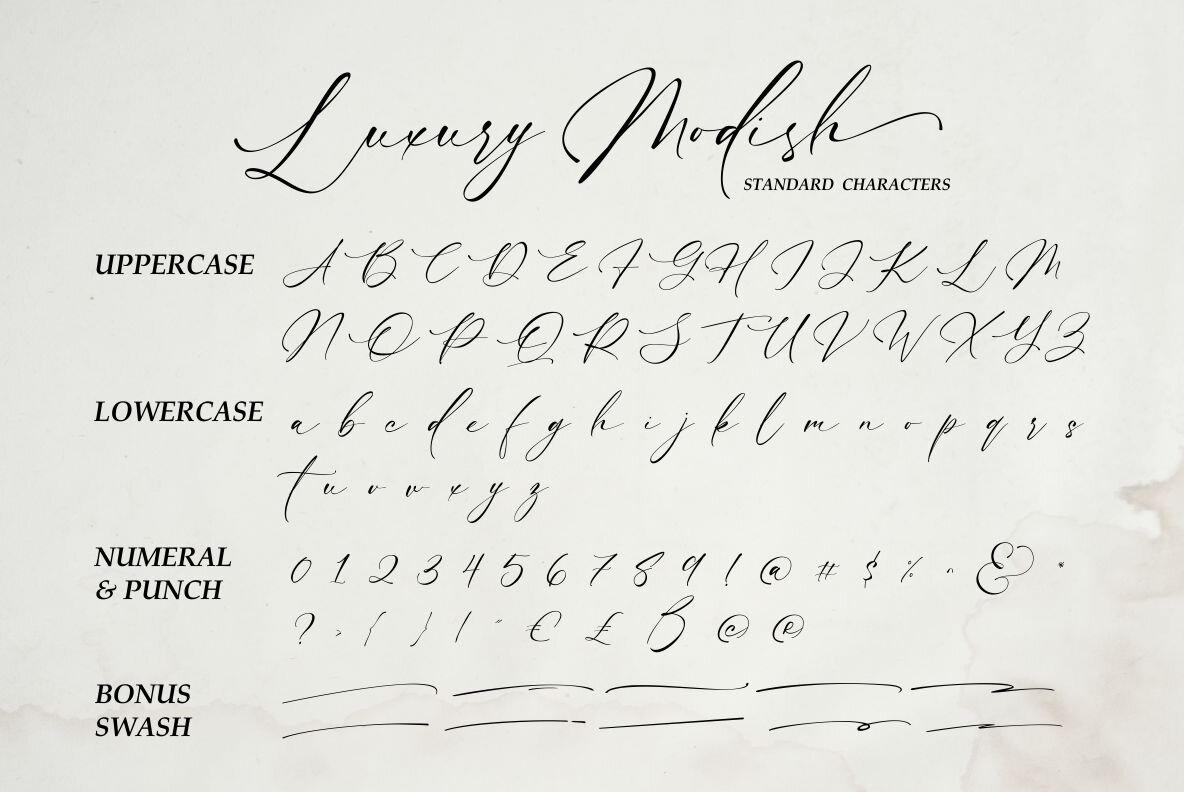 Luxury Modish
STANDARD CHARACTERS
UPPERCASE
A B C D E F G H I J K L M
N O P Q R S T U V W X Y Z
LOWERCASE
a b c d e f g h i j k l m n o p q r s
t u v w x y z
NUMERAL
& PUNCH
0 1 2 3 4 5 6 7 8 9 ! @ # $ % ^ & *
? > { } / " € £ ß © ®
BONUS
SWASH